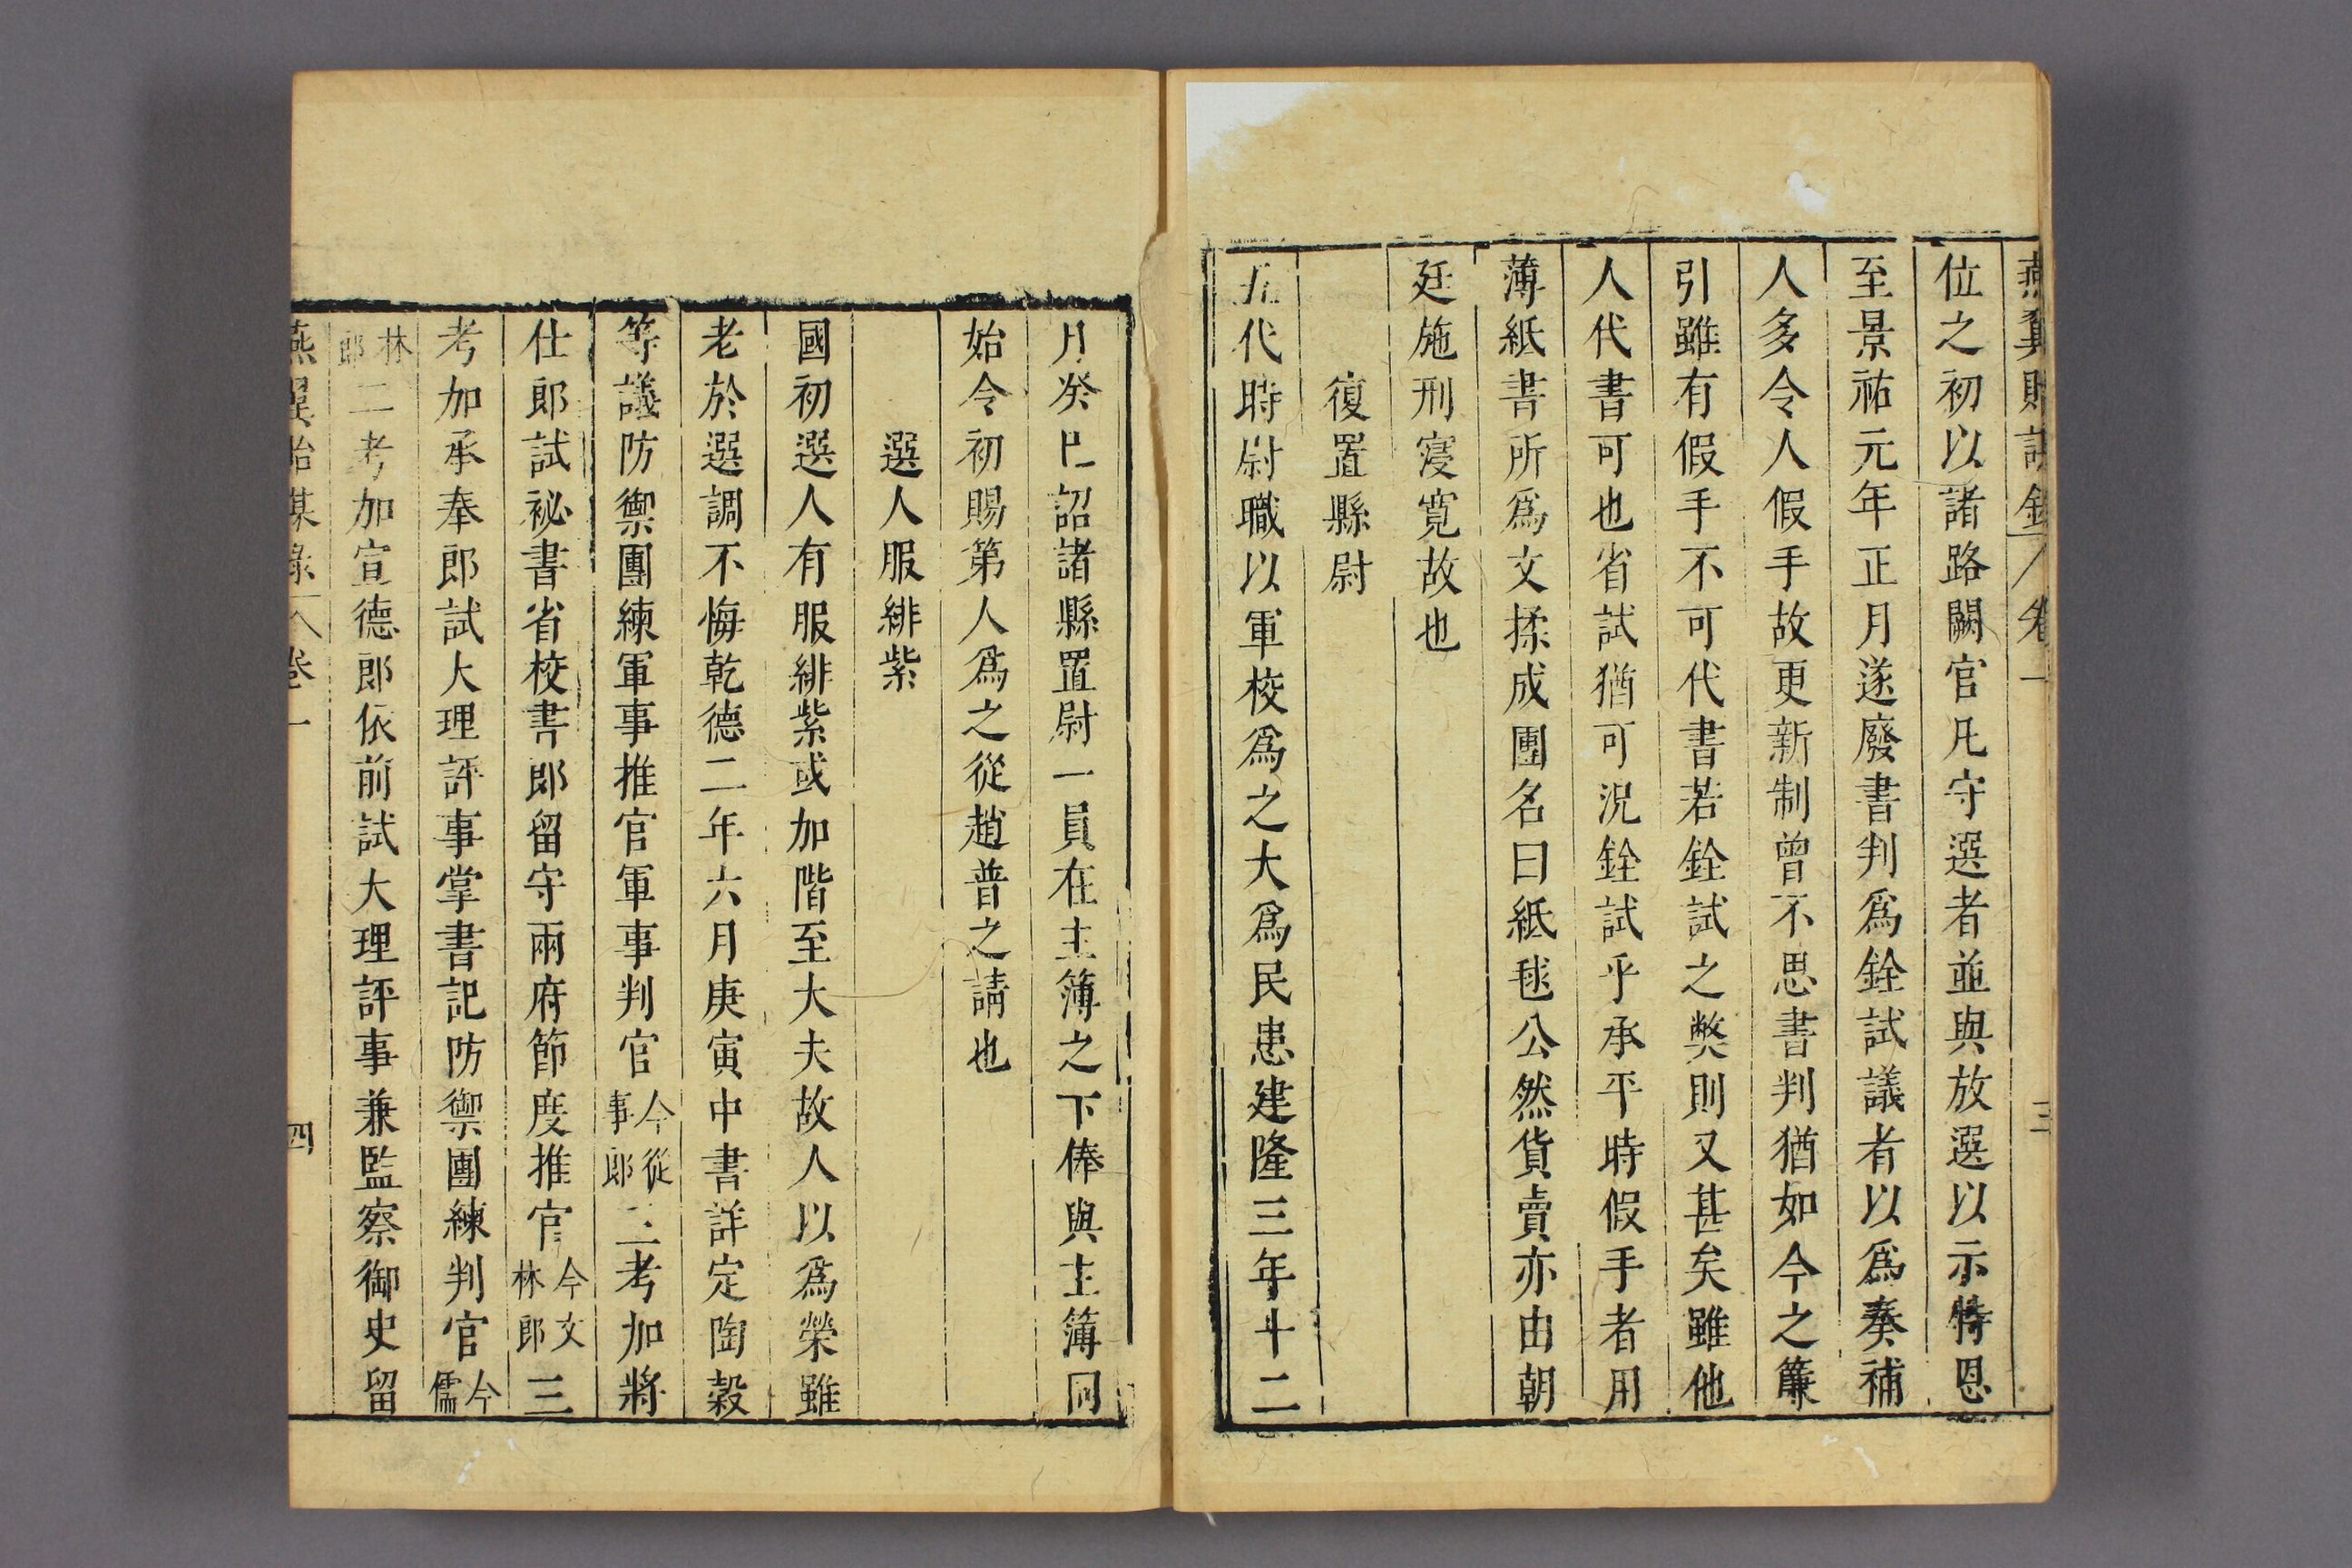 燕翼貽謀錄 卷一 三
位之初以諸路闕官凡守選者並與放選以示特恩
至景祐元年正月遂廢書判爲銓試議者以爲奏補
人多令人假手故更新制曾不思書判猶如今之簾
引雖有假手不可代書若銓試之獘則又甚矣雖他
人代書可也省試猶可況銓試乎承平時假手者用
薄紙書所爲文揉成團名曰紙毬公然貨賣亦由朝
廷施刑寖寛故也
復置縣尉
五代時尉職以軍校爲之大爲民患建隆三年十二
月癸巳詔諸縣置尉一員在主簿之下俸與主簿同
始令初賜第人爲之從趙普之請也
選人服緋紫
國初選人有服緋紫或加階至大夫故人以爲榮雖
老於選調不悔乾德二年六月庚寅中書詳定陶穀
等議防禦團練軍事推官軍事判官今從事郎三考加將
仕郎試祕書省校書郎留守兩府節度推官今文林郎三
考加承奉郎試大理評事掌書記防禦團練判官今儒
林郎二考加宣德郎依前試大理評事兼監察御史留
燕翼貽謀錄 卷一 四